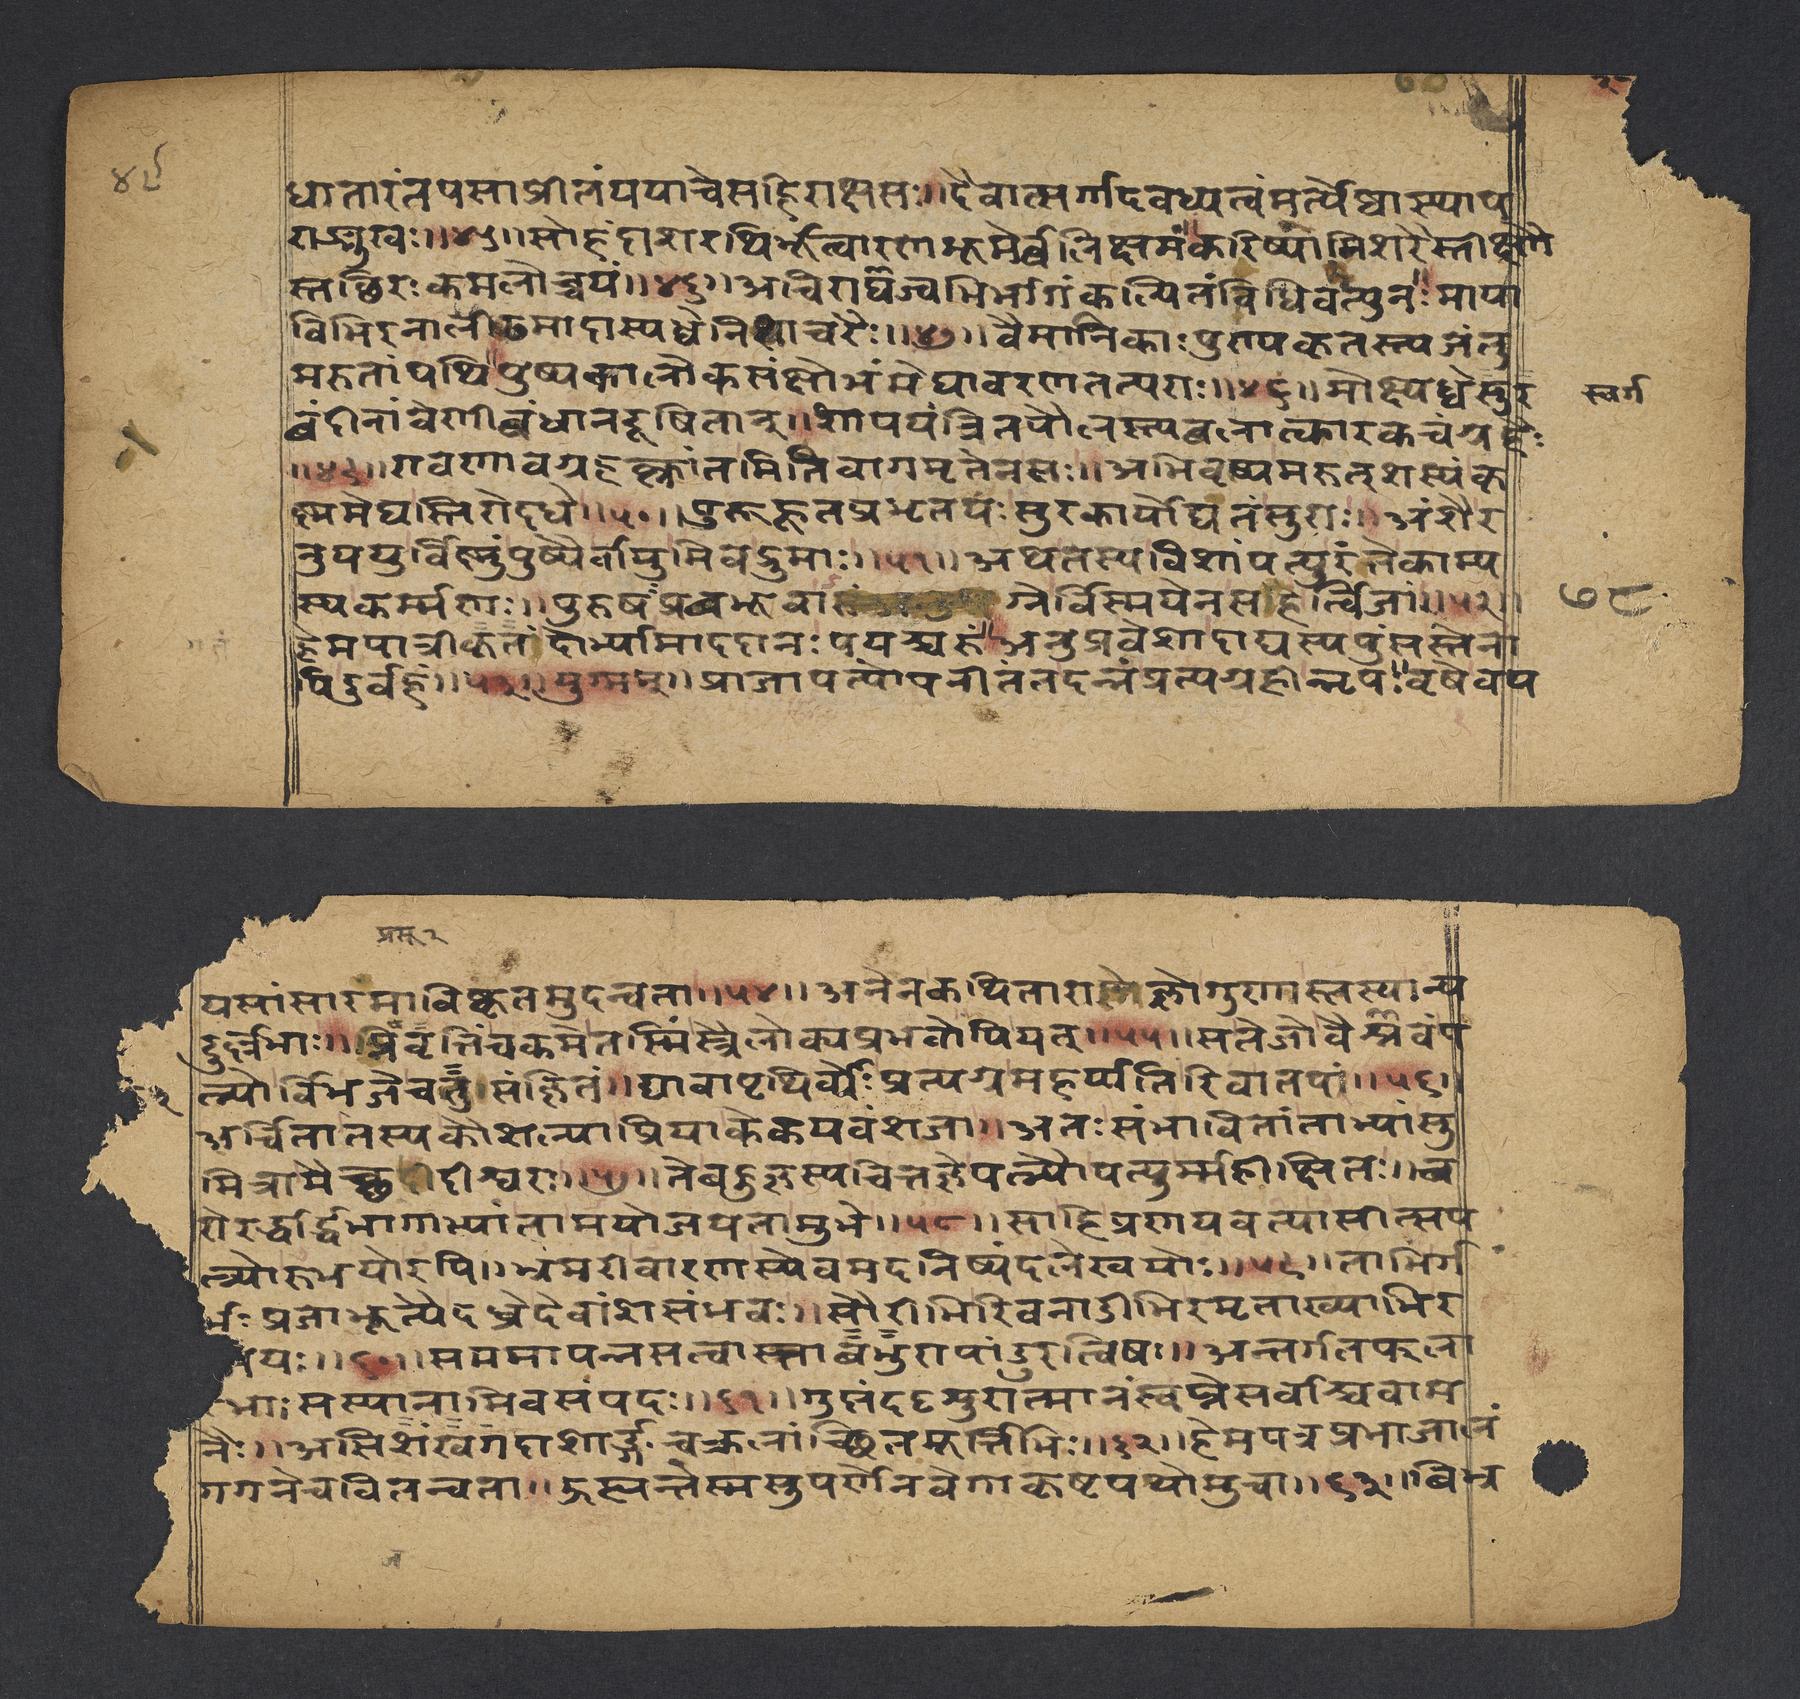 ४९
धातारंतपसाप्रीतंययाचेसहिराक्षसः॥दैवात्सर्गादवध्यत्वंमर्त्येष्वास्थाप
राङ्मुखः॥४५॥सोहंदाशरथिर्भूत्वारणभूमेर्बलिक्षमं॥करिष्यामिशरैस्तीक्ष्णै
स्तछिरःकमलोच्चयं॥४६॥अचिराद्यज्वभिर्भागंकल्पितंविधिवत्पुनः॥माया
विभिरनालीढमादास्यध्वेनिशाचरैः॥४७॥वैमानिकाःपुण्यकृतस्त्यजंतु
मरुतांपथि॥पुष्पकालोकसंक्षोभंमेघावरणतत्पराः॥४८॥मोक्ष्यध्वेसुर
स्वर्ग
बंदीनांवेणीबंधानदूषितान्॥शापयंत्रितपौलस्त्यबलात्कारकचग्रहैः
॥४९॥रावणावग्रहक्लांतमितिवागमृतेनसः॥अभिवृष्यमरुत्शस्यंकृ
ष्णमेघस्तिरोदधे॥५०॥पुरुहूतप्रभृतयःसुरकार्योद्यतंसुराः॥अंशैर
नुययुर्विष्णुंपुष्पैर्वायुमिवद्रुमाः॥५१॥अथतस्यविशांपत्युरंतेकाम्य
स्यकर्म्मणः॥पुरुषःप्रबभूवा ग्नेर्विस्मयेनसहर्त्विजां॥५२॥
७८
हेमपात्रीकृतंदोर्भ्यामादधानःपयश्चरुं॥अनुप्रवेशादाद्यस्यपुंसस्तेना
पिदुर्वहं॥५३॥युग्मम्॥प्राजापत्योपनीतंतदन्नंप्रत्यग्रहीन्नृपः॥वृषेवप
यसांसारमाविष्कृतमुदन्वता॥५४॥अनेनकथिताराज्ञोगुणास्तस्यान्य
दुर्ल्लभाः॥प्रवृत्तिंचकमेतस्मिंस्त्रैलोक्यप्रभवोपियत्॥५५॥सतेजोवैष्णवंप
त्न्योर्विभेजेचरुसंज्ञितं॥द्यावापृथिव्योःप्रत्यग्रमहर्पतिरिवातपं॥५६॥
अर्चितातस्यकौशल्याप्रियाकेकयवंशजा॥अतःसंभावितांताभ्यांसु
मित्रामैच्छदीश्वरः॥५७॥तेबहुज्ञस्यचित्तज्ञेपत्न्यौपत्युर्म्महीक्षितः॥च
रोरर्द्धार्द्धभागाभ्यांतामयोजयतामुभे॥५८॥साहिप्रणयवत्यासीत्सप
त्न्योरुभयोरपि॥भ्रमरीवारणस्येवमदनिष्यंदलेखयोः॥५९॥ताभिर्ग
र्भःप्रजाभूत्यैदध्रेदेवांशसंभवः॥सौरीभिरिवनाडीभिरमृताख्याभिर
यः॥६०॥सममापन्नसत्वास्ताबभुरापांडुरत्विषः॥अन्तर्गतफला
सस्यानामिवसंपदः॥६१॥गुप्तंददृशुरात्मानंस्वप्नेसर्वाश्चवाम
नैः॥असिशंखगदाशार्ङ्गचक्रलांच्छितमूर्त्तिभिः॥६२॥हेमपत्रप्रभाजालं
गगनेचवितन्वता॥ऊह्यन्तेस्मसुपर्णेनवेगाकृष्टपयोमुचा॥६३॥बिभ्र